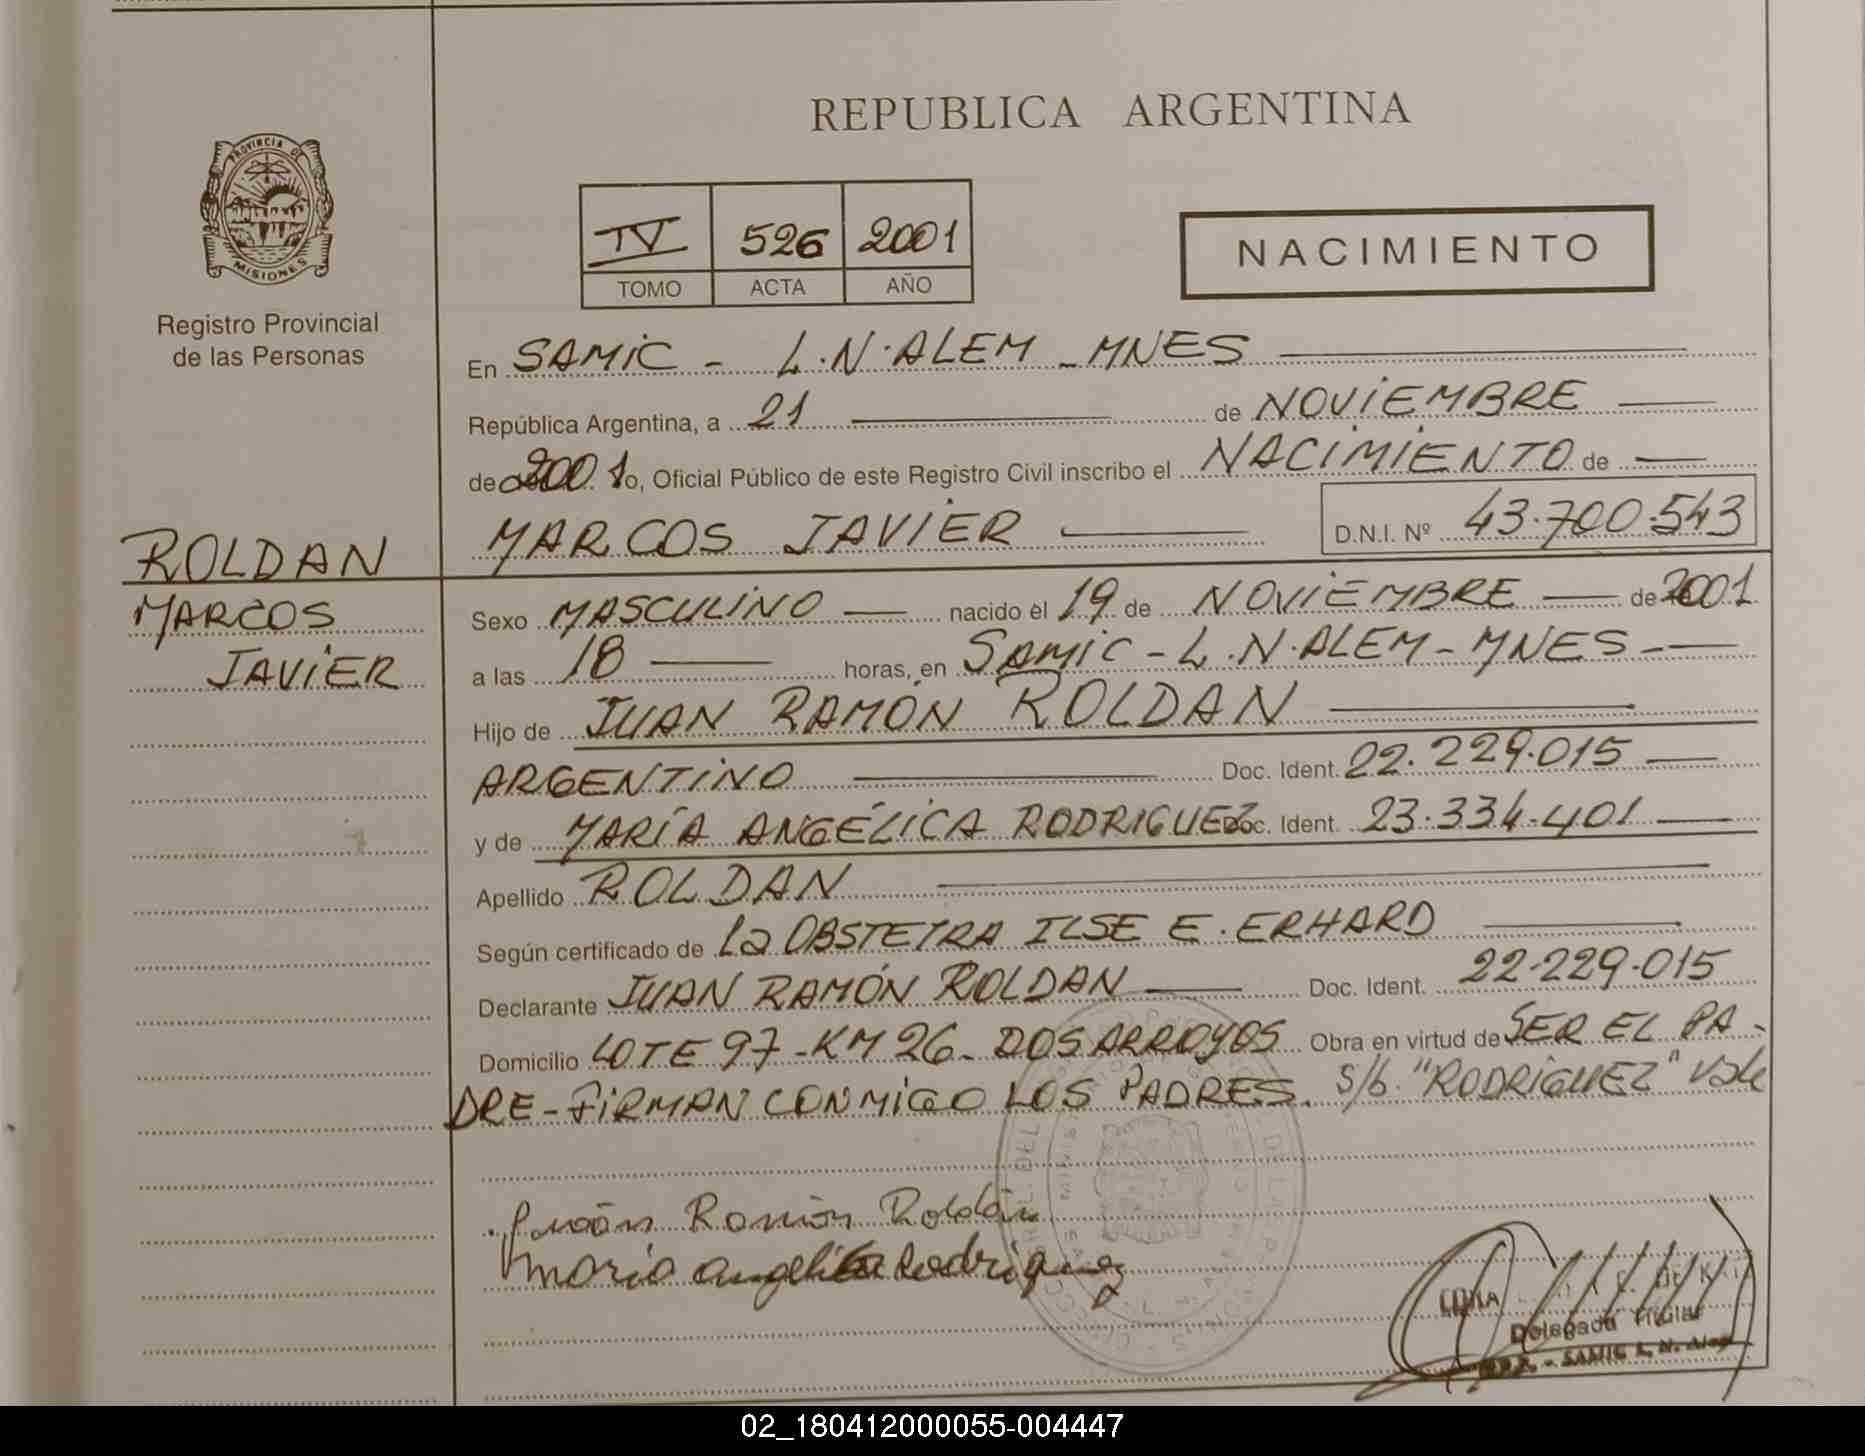 REPUBLICA ARGENTINA
PROVINCIA DE
MISIONES
Registro Provincial
de las Personas
IV 526 2001
TOMO ACTA AÑO
NACIMIENTO
En SAMIC - L.N. ALEM - MNES
República Argentina, a 21 de NOVIEMBRE
de 2001 Yo, Oficial Público de este Registro Civil inscribo el NACIMIENTO de
MARCOS JAVIER D.N.I. Nº 43.700.543
ROLDAN
MARCOS
JAVIER
Sexo MASCULINO nacido el 19 de NOVIEMBRE de 2001
a las 18 horas, en SAMIC - L.N. ALEM - MNES -
Hijo de JUAN RAMÓN ROLDAN
ARGENTINO Doc. Ident. 22.229.015
y de MARÍA ANGÉLICA RODRIGUEZ Doc. Ident. 23.334.401
Apellido ROLDAN
Según certificado de La OBSTETRA ILSE E. ERHARD
Declarante JUAN RAMÓN ROLDAN Doc. Ident. 22.229.015
Domicilio LOTE 97 - KM 26 - DOS ARROYOS Obra en virtud de SER EL PA-
DRE - FIRMAN CONMIGO LOS PADRES. S/b. "RODRÍGUEZ" Vale
Juán Ramón Roldán
Maria angelica Rodriguez
Delegada Titular
SAMIC L. N. Alem
02_180412000055-004447